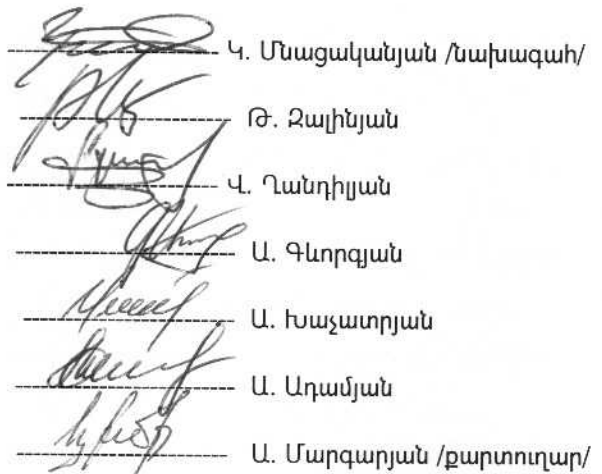 Կ. Մնացականյան /նախագահ/
Թ. Զալինյան
Վ. Ղանդիլյան
Ա. Գևորգյան
Ա. Խաչատրյան
Ա. Ադամյան
Ա. Մարգարյան /քարտուղար/